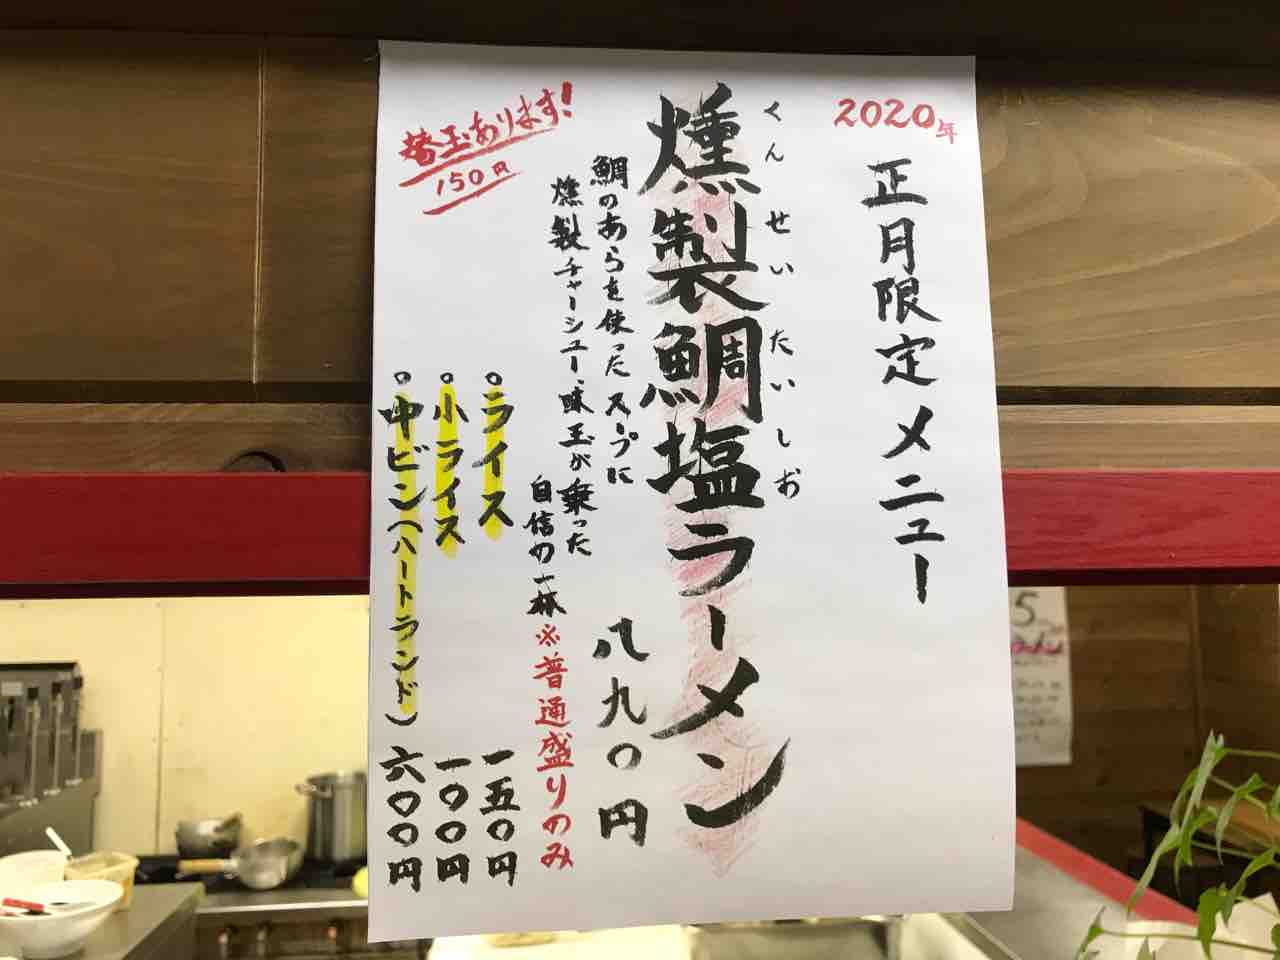 2020年
正月限定メニュー
くんせいたいしお
燻製鯛塩ラーメン
八九〇円
鯛のあらを使ったスープに
燻製チャーシュー、味玉が乗った
自信の一杯※普通盛りのみ
替玉あります!
150円
ライス 一五〇円
小ライス 一〇〇円
中ビン(ハートランド) 六〇〇円